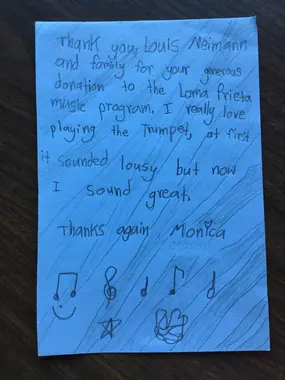 Thank you, Louis Neimann
and family for your generous
donation to the Loma Prieta
music program. I really love
playing the Trumpet, at first
it sounded lousy but now
I sound great.
Thanks again, Monica